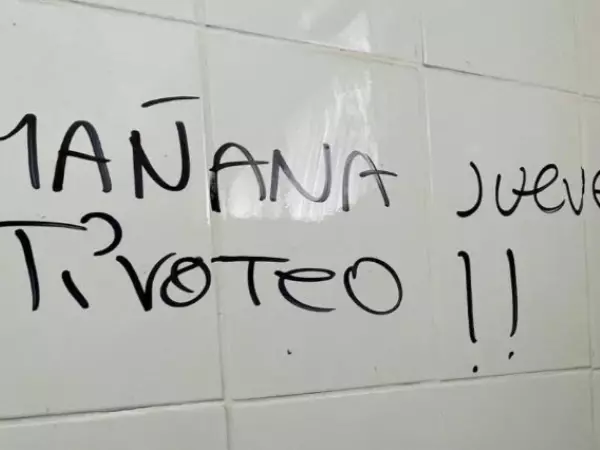 MAÑANA jueve
TiroTeo !!